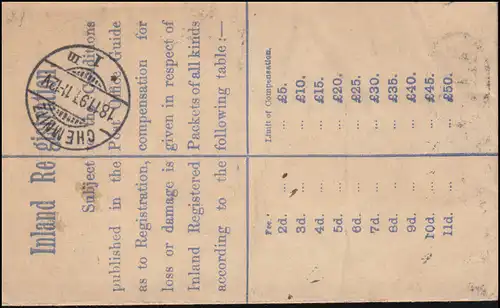 Inland Registration
Subject to the Conditions
published in the Post Office Guide
as to Registration, compensation for
loss or damage is given in respect of
Inland Registered Packets of all kinds
according to the following table:—
Fee. Limit of Compensation.
2d. ... ... £5.
3d. ... ... £10.
4d. ... ... £15.
5d. ... ... £20.
6d. ... ... £25.
7d. ... ... £30.
8d. ... ... £35.
9d. ... ... £40.
10d. ... ... £45.
11d. ... ... £50.
CHEMNITZ